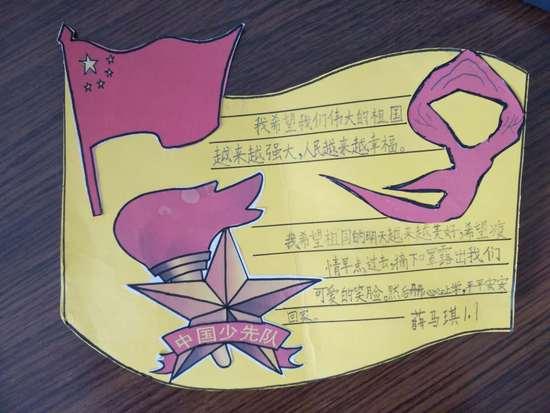 我希望我们伟大的祖国
越来越强大,人民越来越幸福。
我希望祖国的明天越来越美好,希望疫
情早点过去,摘下口罩露出我们
可爱的笑脸。然后开开心心上学,平平安安
回家。
薛马琪 1.1
中国少先队